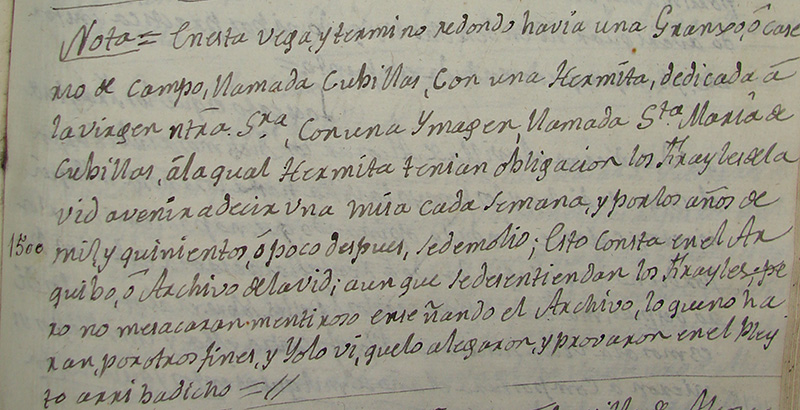 Nota = En esta vega, y termino redondo havia una Granxa, ô case
rio de campo, llamada Cubillas, Con una Hermita, dedicada â
la virgen ntrâ. Sra, Con una Ymagen, llamada Sta Maria de
Cubillas, âla qual Hermita tenian obligacion los Frayles dela
vid avenir a decir una misa cada semana, y por los años de
1500 mill y quinientos, ô poco despues, se demolio; Esto Consta en el Ar
quibo, ô Archivo dela vid; aunque sedesentiendan los Frayles, pe
ro no mesacaran mentiroso enseñando el Archivo, lo que no ha
ran, por otros fines, y Yolo vi, que lo alegaron, y provaron en el Pley
to arribadicho = //